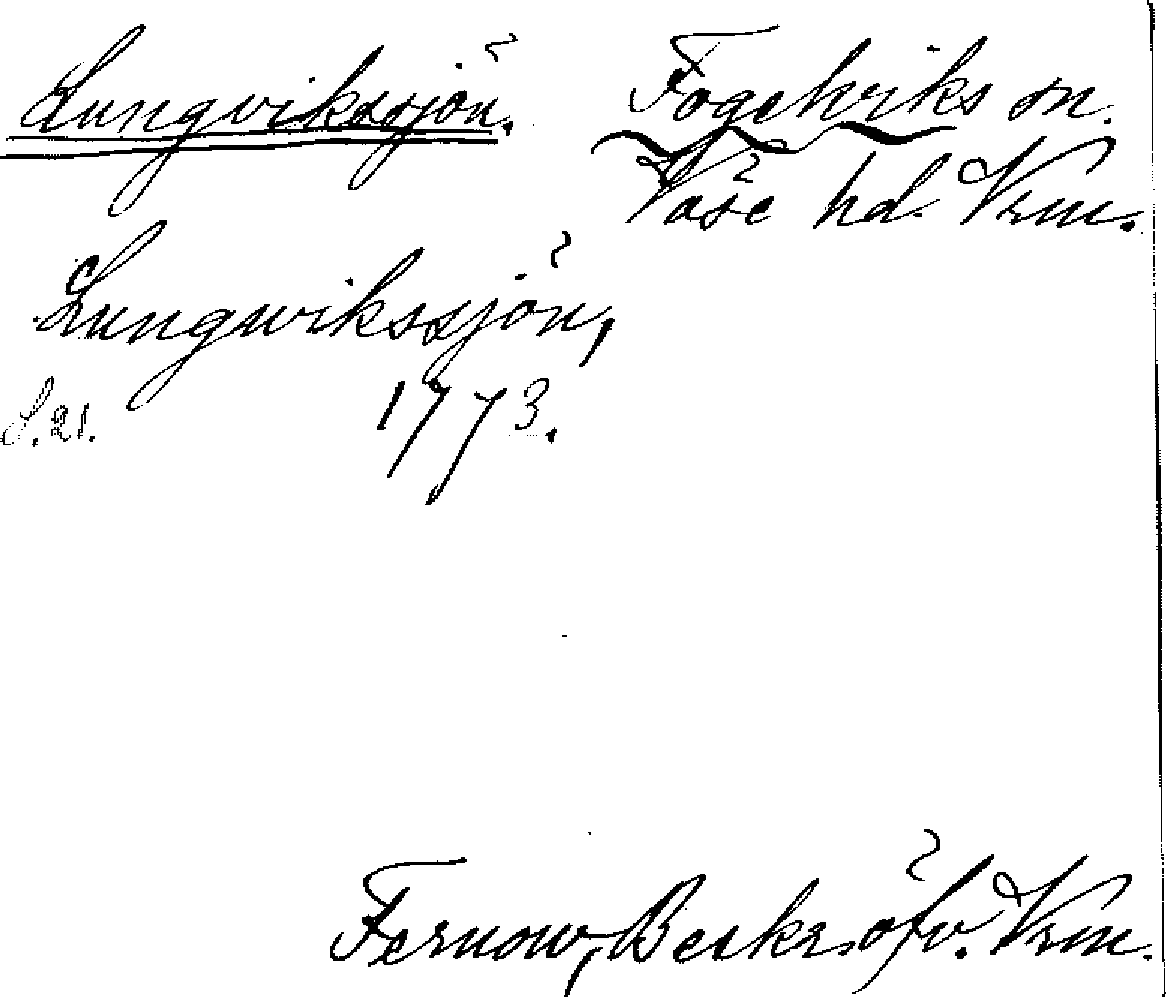 Lungvikssjön. Fogelviks sn.
Väse hd. Vrm.
Lungwikssjön,
S. 21. 1773.
Fernow, Beskr. öfv. Vrm.